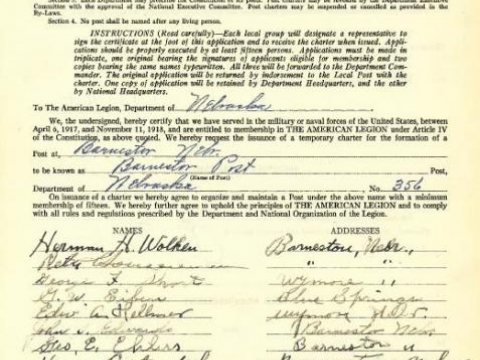 Committee with the approval of the National Executive Committee. Post charters may be suspended or cancelled as provided in the
By-Laws.
Section 4. No post shall be named after any living person.
INSTRUCTIONS (Read carefully)—Each local group will designate a representative to
sign the certificate at the foot of this application and to receive the charter when issued. Appli-
cations should be properly executed by at least fifteen persons. Applications must be made in
triplicate, one original bearing the signatures of applicants eligible for membership and two
copies bearing the same names typewritten. All three will be forwarded to the Department Com-
mander. The original application will be returned by indorsement to the Local Post with the
charter. One copy of application will be retained by Department Headquarters, and the other
by National Headquarters.
To The American Legion, Department of Nebraska
We, the undersigned, hereby certify that we have served in the military or naval forces of the United States, between
April 6, 1917, and November 11, 1918, and are entitled to membership in THE AMERICAN LEGION under Article IV
of the Constitution, as above quoted. We hereby request the issuance of a temporary charter for the formation of a
Post at Barneston Nebr.
to be known as Barneston Post
(Name of Post)
Department of Nebraska No. 356
On issuance of a charter we hereby agree to organize and maintain a Post under the above name with a minimum
membership of fifteen. We hereby further agree to uphold the principles of THE AMERICAN LEGION and to comply
with all rules and regulations prescribed by the Department and National Organization of the Legion.
NAMES ADDRESSES
Herman H. Wolken Barneston, Nebr.,
" "
George F. Short Wymore "
G. W. Blue Springs
Edw. A. Hellmer Wymore Nebr.
John V. Edwards Barneston Nebr.
Geo. E. Ehlers Barneston "